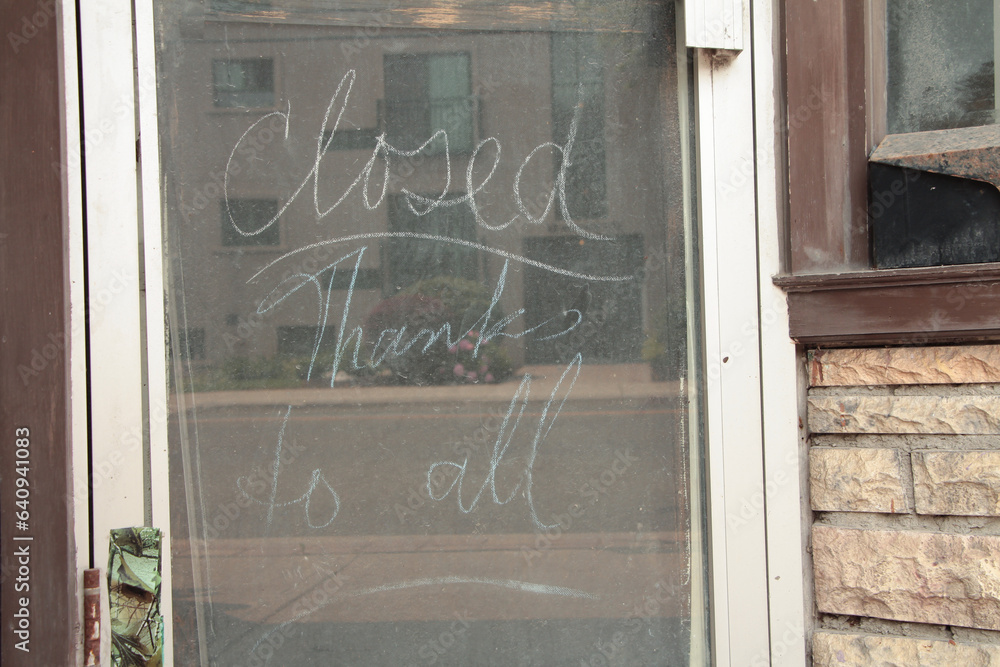 Closed
Thanks
to all
Adobe Stock | #640941083